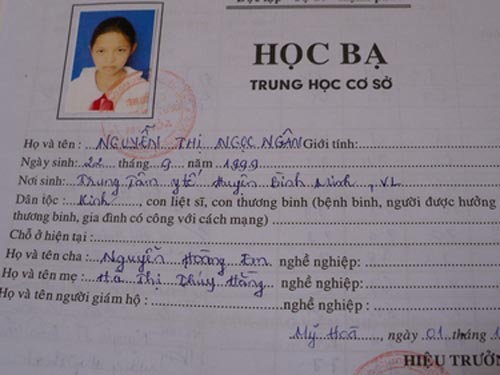 HỌC BẠ
TRUNG HỌC CƠ SỞ
Họ và tên : NGUYỄN THỊ NGỌC NGÂN Giới tính:
Ngày sinh: 22 tháng 9 năm 1999
Nơi sinh: Trung Tâm y tế Huyện Bình Minh, VL
Dân tộc : Kinh, con liệt sĩ, con thương binh (bệnh binh, người được hưởng
thương binh, gia đình có công với cách mạng)
Chỗ ở hiện tại :
Họ và tên cha : Nguyễn Hoàng Em nghề nghiệp:
Họ và tên mẹ : Hà Thị Thúy Hằng nghề nghiệp:
Họ và tên người giám hộ : nghề nghiệp:
Mỹ Hoà, ngày 01 tháng
HIỆU TRƯỞ